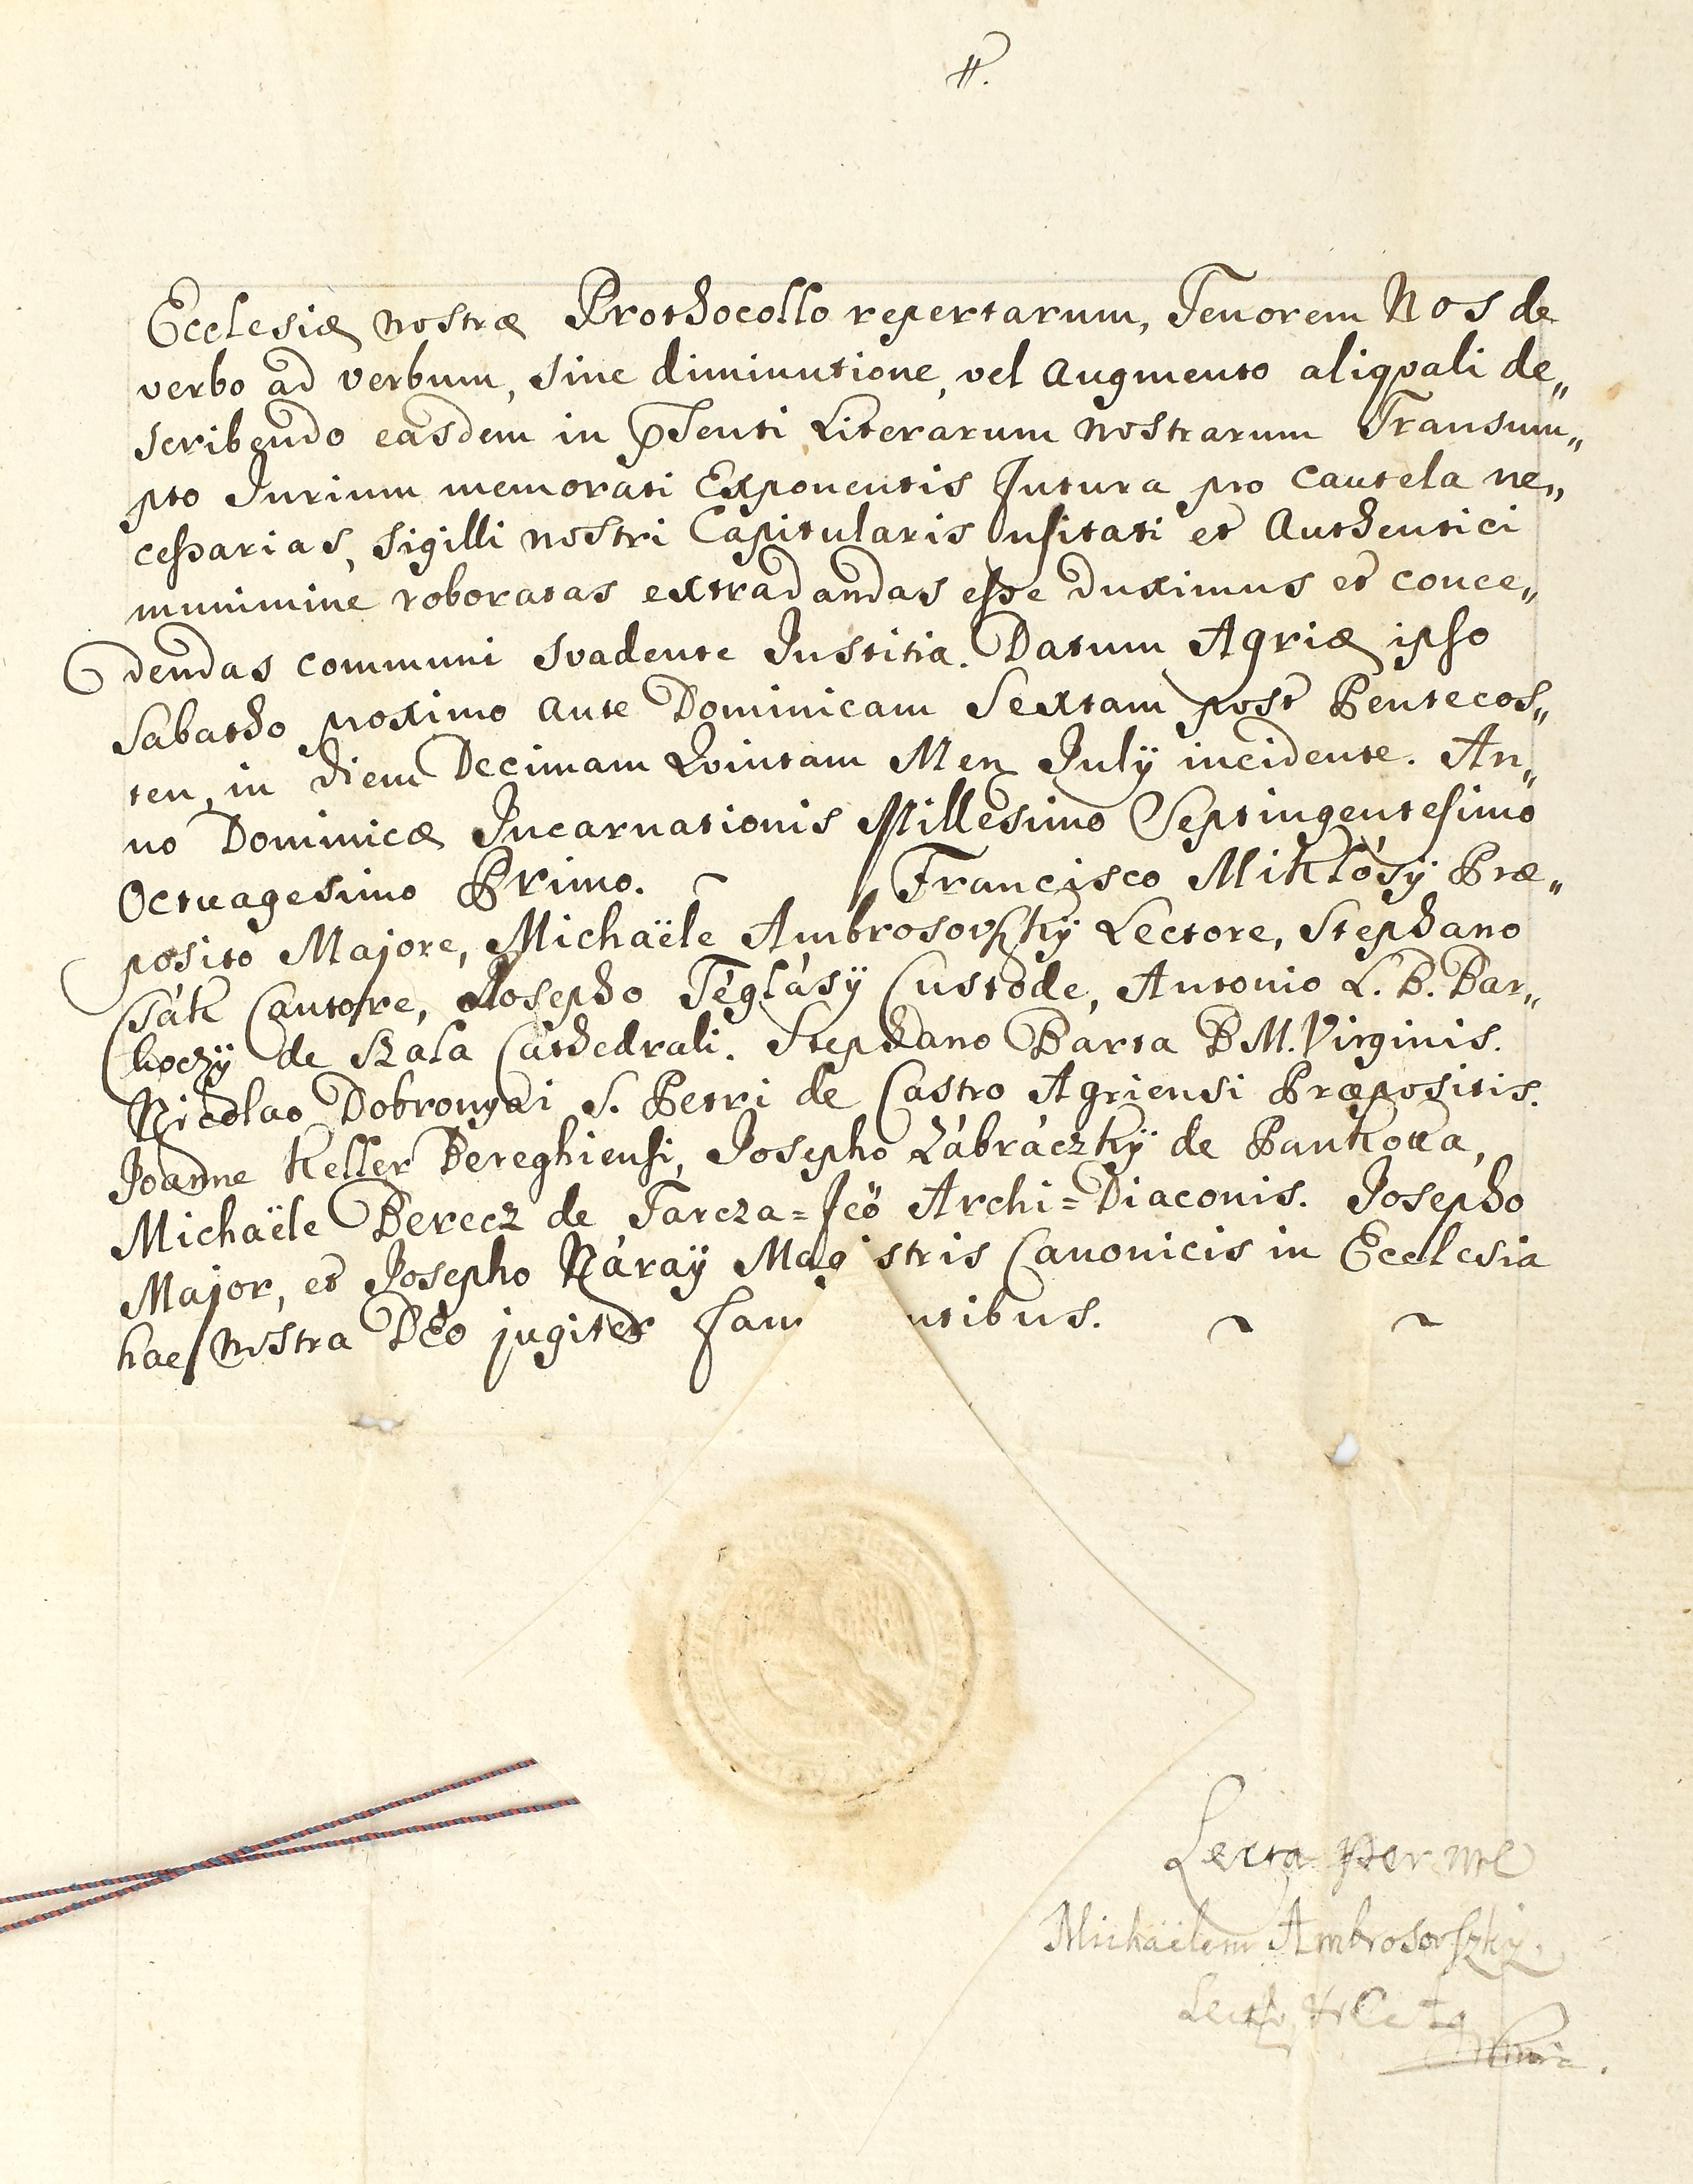 Ecclesiæ nostræ Prothocollo repertarum, Tenorem Nos de
verbo ad verbum, sine diminutione, vel augmento aliqvali de„
scribendo easdem in pSenti Literarum nostrarum Transum„
pto Jurium memorati Exponentis futura pro cautela ne„
cessarias, sigilli nostri Capitularis usitati et Authentici
munimine roboratas extradandas esse duximus et conce„
dendas communi svadente Justitia. Datum Agriæ ipso
Sabatho proximo ante Dominicam Sextam post Pentecos„
ten, in diem Decimam Qvintam Men Julÿ incidente. An„
no Dominicæ Incarnationis Millesimo Septingentesimo
Octuagesimo Primo. ~ Francisco Miklósÿ Præ„
posito Majore, Michaële Ambrosovszkÿ Lectore, Stephano
Csák Cantore, Josepho Téglásÿ Custode, Antonio L. B. Bar„
koczÿ de Szala Cathedrali. Stephano Barta B M. Virginis.
Nicolao Dobronyai S. Petri de Castro Agriensi Præpositis.
Joanne Keller Bereghiensi, Josepho Zábráczkÿ de Pankota,
Michaële Berecz de Tarcza=fö Archi=Diaconis. Josepho
Major, et Josepho Náraÿ Magistris Canonicis in Ecclesia
hac nostra Deo jugiter fam ntibus. ~ ~
Lecta per me
Michaëlem Ambrosovszkÿ